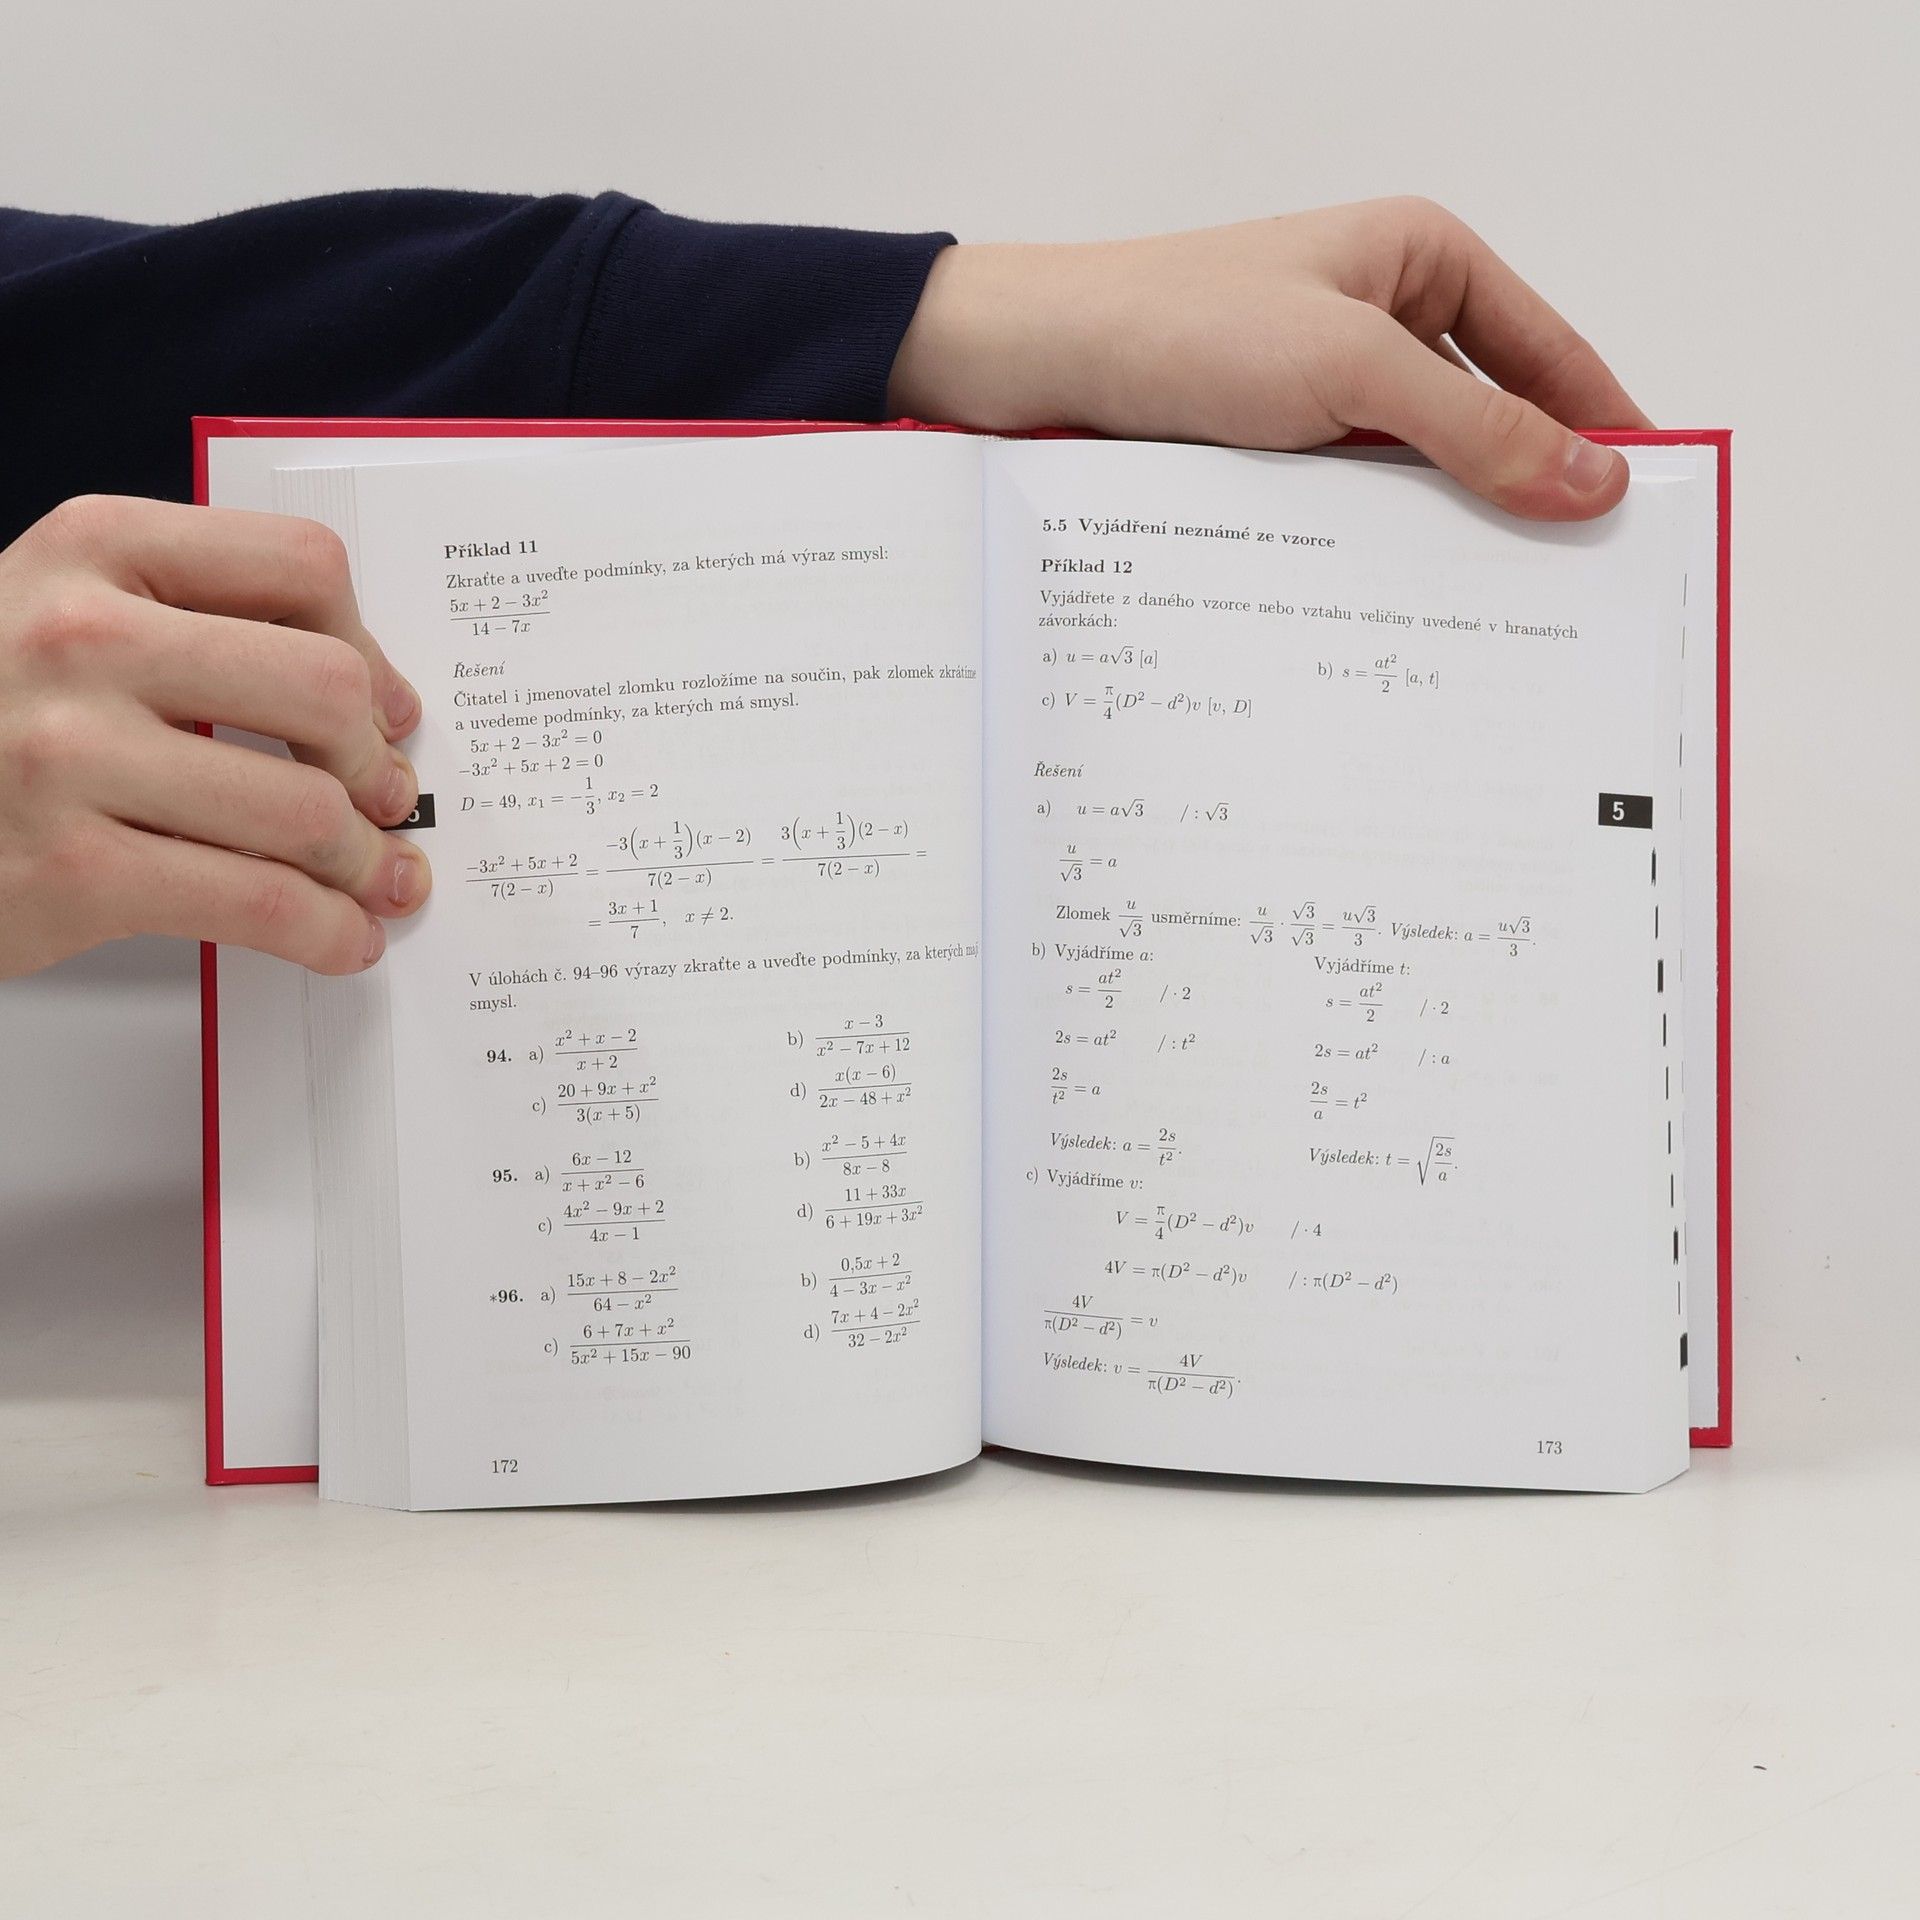 Příklad 11
Zkraťte a uveďte podmínky, za kterých má výraz smysl:
(5x + 2 − 3x²)/(14 − 7x)
Řešení
Čitatel i jmenovatel zlomku rozložíme na součin, pak zlomek zkrátíme
a uvedeme podmínky, za kterých má smysl.
5x + 2 − 3x² = 0
−3x² + 5x + 2 = 0
D = 49, x₁ = −1/3, x₂ = 2
(−3x² + 5x + 2)/(7(2 − x)) = (−3(x + 1/3)(x − 2))/(7(2 − x)) = (3(x + 1/3)(2 − x))/(7(2 − x)) =
= (3x + 1)/7, x ≠ 2.
V úlohách č. 94–96 výrazy zkraťte a uveďte podmínky, za kterých
smysl.
94. a) (x² + x − 2)/(x + 2) b) (x − 3)/(x² − 7x + 12)
c) (20 + 9x + x²)/(3(x + 5)) d) (x(x − 6))/(2x − 48 + x²)
95. a) (6x − 12)/(x + x² − 6) b) (x² − 5 + 4x)/(8x − 8)
c) (4x² − 9x + 2)/(4x − 1) d) (11 + 33x)/(6 + 19x + 3x²)
*96. a) (15x + 8 − 2x²)/(64 − x²) b) (0,5x + 2)/(4 − 3x − x²)
c) (6 + 7x + x²)/(5x² + 15x − 90) d) (7x + 4 − 2x²)/(32 − 2x²)
172
5.5 Vyjádření neznámé ze vzorce
Příklad 12
Vyjádřete z daného vzorce nebo vztahu veličiny uvedené v hranatých
závorkách:
a) u = a√3 [a] b) s = at²/2 [a, t]
c) V = π/4(D² − d²)v [v, D]
Řešení
a) u = a√3 / : √3
5
u/√3 = a
Zlomek u/√3 usměrníme: u/√3 · √3/√3 = u√3/3. Výsledek: a = u√3/3.
b) Vyjádříme a: Vyjádříme t:
s = at²/2 / · 2 s = at²/2 / · 2
2s = at² / : t² 2s = at² / : a
2s/t² = a 2s/a = t²
Výsledek: a = 2s/t². Výsledek: t = √(2s/a).
c) Vyjádříme v:
V = π/4(D² − d²)v / · 4
4V = π(D² − d²)v / : π(D² − d²)
4V/(π(D² − d²)) = v
Výsledek: v = 4V/(π(D² − d²)).
173